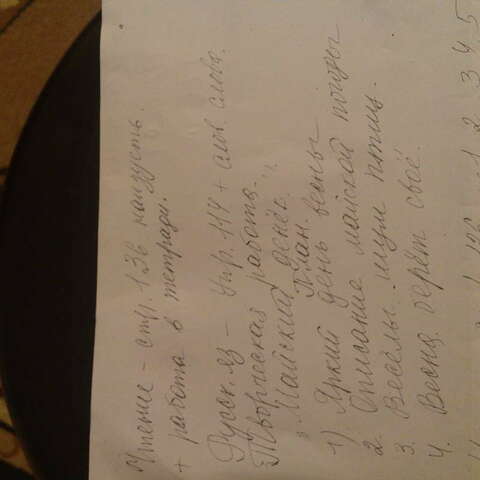 Чтение - стр. 136 наизусть.
+ работа в тетради.
Русск. яз - Упр. 114 + слов. слова.
Творческая работа.
"Майский денёк."
План.
1) Яркий день весны
2. Описание майской погоды
3. Весёлый шум птиц.
4. Весна берёт своё.
2 3 4 5